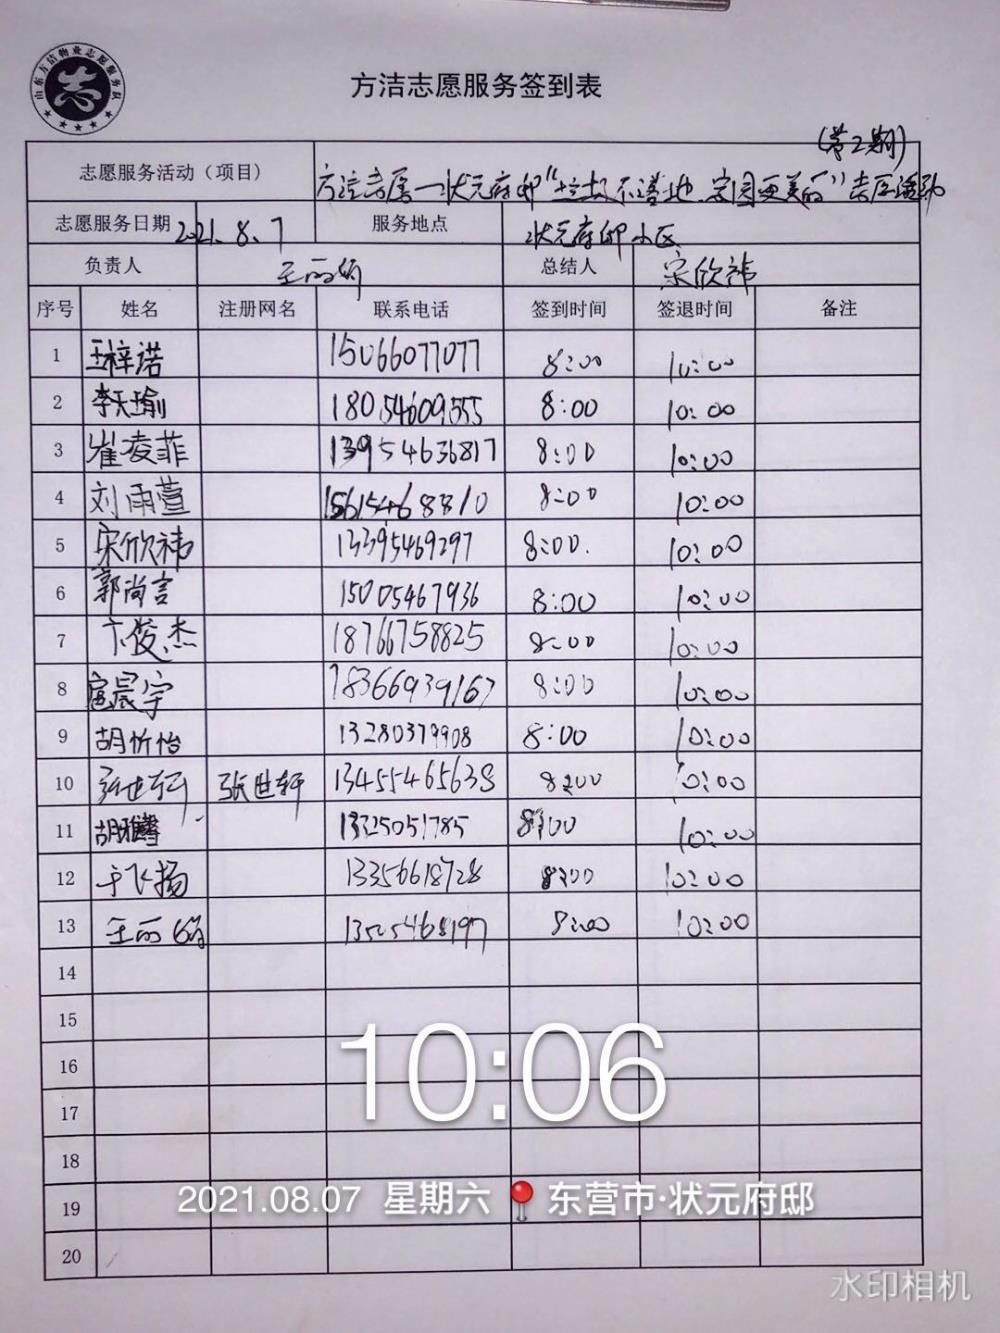 山东方洁物业志愿服务队
志
方洁志愿服务签到表
(第2期)
志愿服务活动（项目） 方洁志愿一状元府邸"垃圾不落地 家园更美丽"志愿活动
志愿服务日期 2021.8.7 服务地点 状元府邸小区
负责人 王丽娟 总结人 宋欣祎
序号 姓名 注册网名 联系电话 签到时间 签退时间 备注
1 王梓诺 15066077077 8:00 10:00
2 李天瑜 18054609555 8:00 10:00
3 崔凌菲 13954636817 8:00 10:00
4 刘雨萱 15615468810 8:00 10:00
5 宋欣祎 13395469297 8:00. 10:00
6 郭尚言 15005467936 8:00 10:00
7 卞俊杰 18766758825 8:00 10:00
8 扈晨宇 18366939167 8:00 10:00
9 胡忻怡 13280379908 8:00 10:00
10 张世轩 张世轩 13455465638 8:00 10:00
11 胡雅 13325051785 8:00 10:00
12 于飞扬 13356618728 8:00 10:00
13 王丽娟 13505468197 8:00 10:00
14
15
16
17
18
19
20
10:06
2021.08.07 星期六 东营市·状元府邸
水印相机